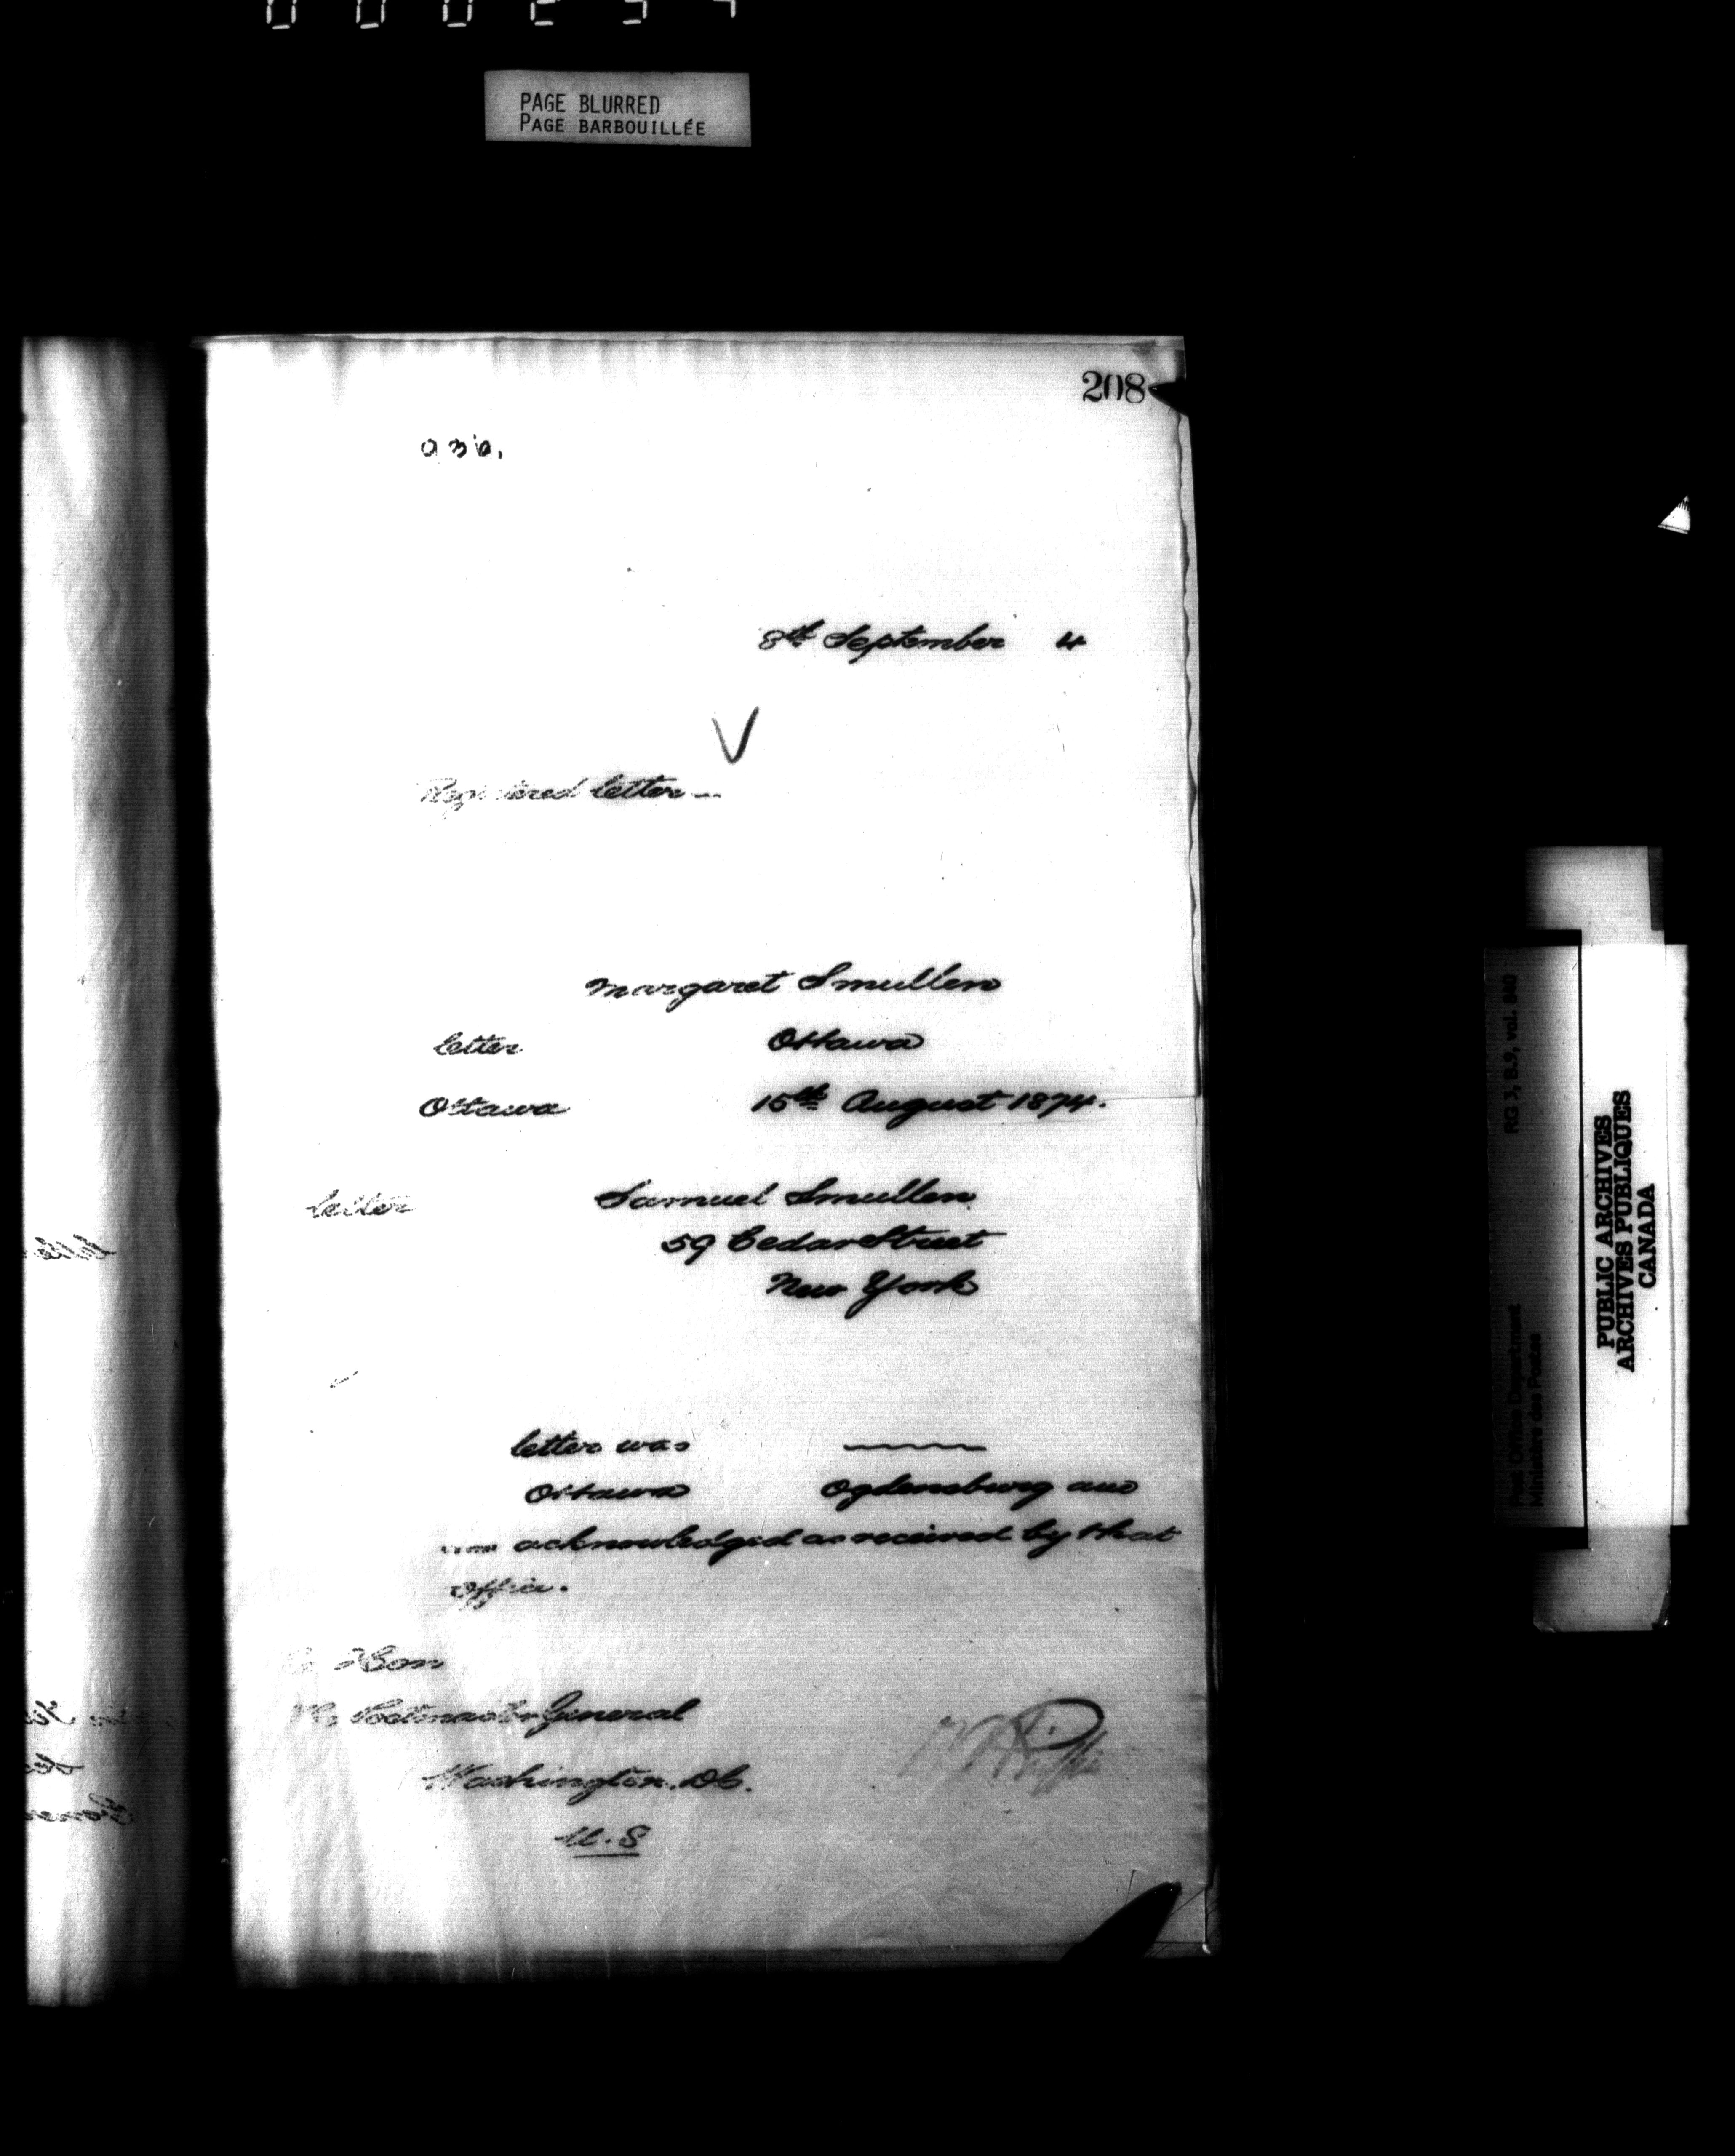 PAGE BLURRED
PAGE BARBOUILLÉE
208
036.
8th September 4
Registered letter
Margaret Smullen
letter Ottawa
Ottawa 15th August 1874.
letter Samuel Smullen
59 Cedar Street
New York
letter was
Ottawa Ogdensburg and
acknowledged as received by that
Office.
Hon
The Postmaster General
Washington. DC.
U.S
RG 3, B.9, vol. 840
Post Office Department
Ministère des Postes
PUBLIC ARCHIVES
ARCHIVES PUBLIQUES
CANADA